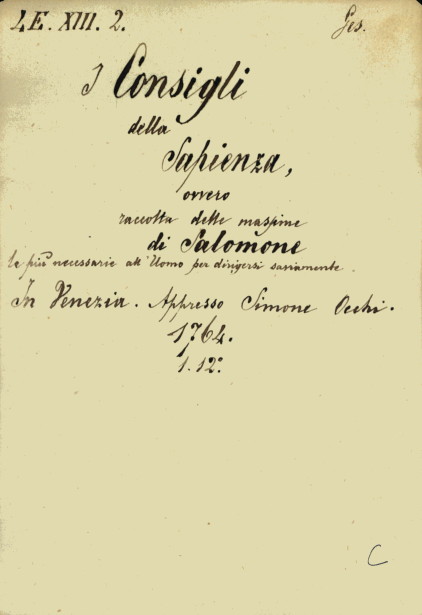 LE. XIII. 2. Ges.
I Consigli
della
Sapienza,
ovvero
raccolta delle massime
di Salomone
le più necessarie all'Uomo per dirigersi saviamente.
In Venezia. Appresso Simone Occhi.
1764.
1. 12°.
C